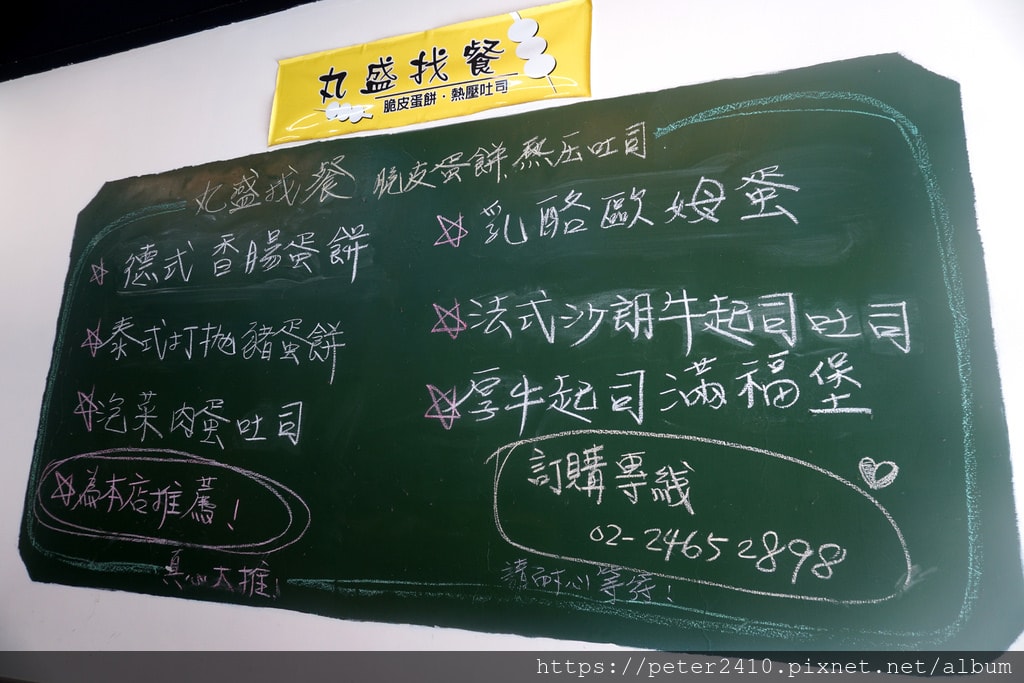 丸盛找餐
脆皮蛋餅·熱壓吐司
丸盛找餐 脆皮蛋餅.熱压吐司
☆ 德式香腸蛋餅
☆ 泰式打拋豬蛋餅
☆ 泡菜肉蛋吐司
☆ 為本店推薦!
真心大推!
☆ 乳酪歐姆蛋
☆ 法式沙朗牛起司吐司
☆ 厚牛起司滿福堡
訂購專線
02-24652898
請耐心等待!
https://peter2410.pixnet.net/album